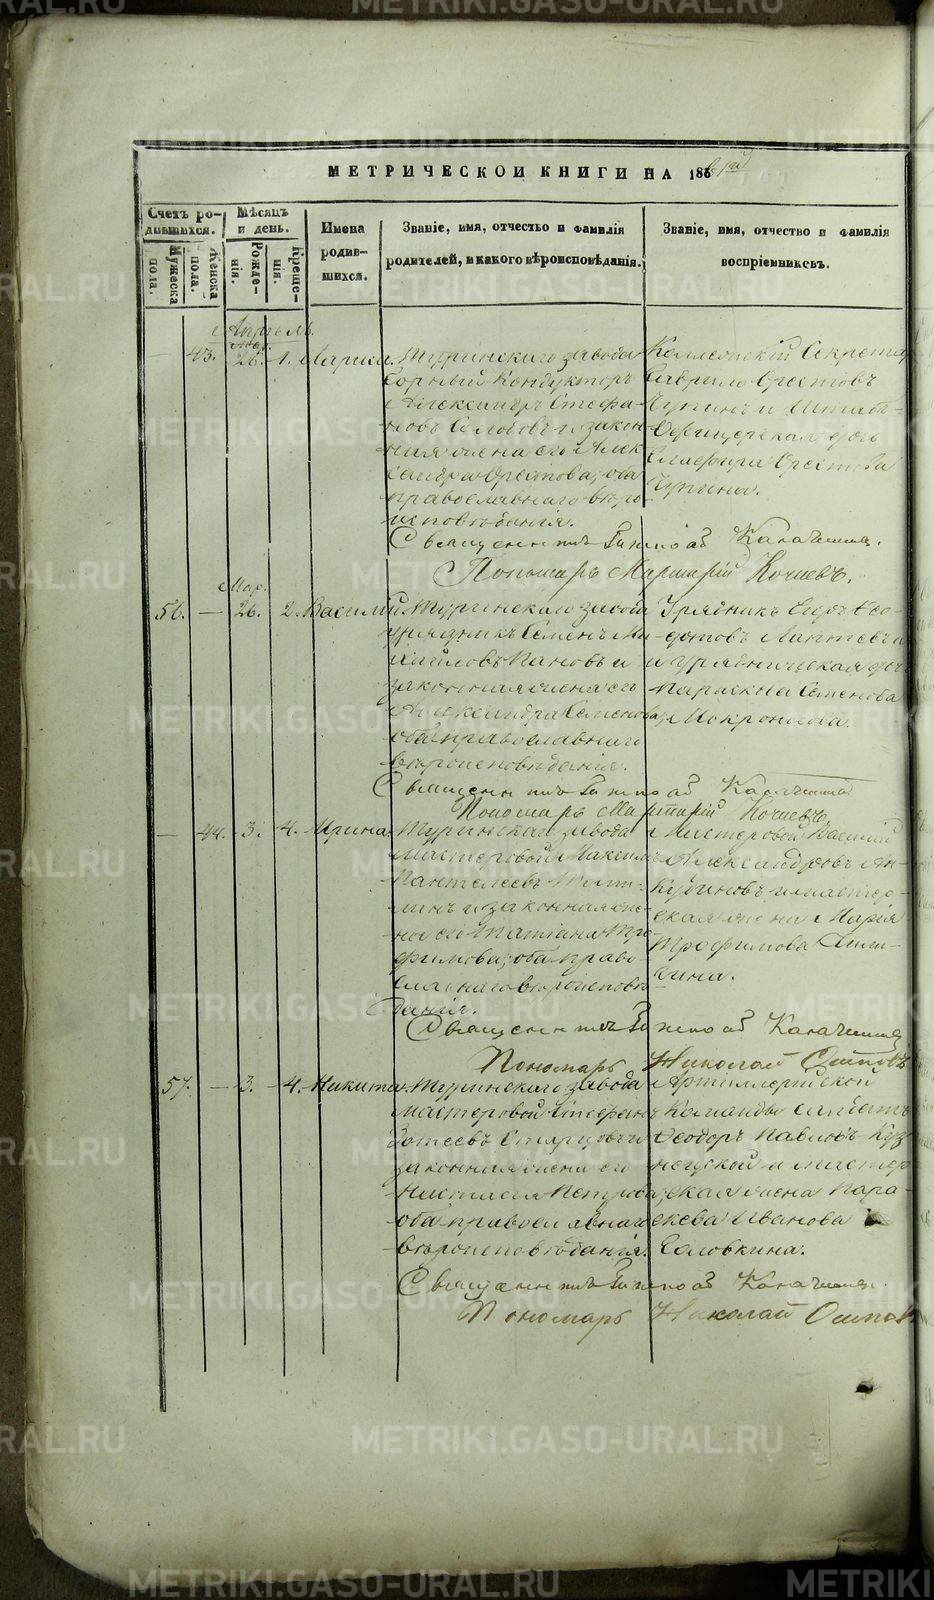 METRIKI.GASO-URAL.RU
МЕТРИЧЕСКОЙ КНИГИ НА 186
Счетъ ро-
дившихся.
Мужеска
пола.
Женска
пола.
Мѣсяцъ
и день.
Рожде-
нія.
Креще-
нія.
Имена
родив-
шихся.
Званіе, имя, отчество и фамилія
родителей, и какого вѣроисповѣданія.
Званіе, имя, отчество и фамилія
воспріемниковъ.
Апрѣль.
Мар.
— 43. 26. 1. Марія.
Туринскаго завода
Горный Кондукторъ
Александръ Стефа-
новъ и закон-
ная жена его Алек-
сандра Орестова; оба
православнаго вѣро-
исповѣданія.
Коллежскій Секретарь
Орестовъ
Чупинъ и Штабъ-
Офицерская дочь
Орестова
Чупина.
Священникъ
Пономарь Мартирій Кочневъ.
Мар.
56. — 26. 2. Василій
Туринскаго завода
урядникъ Семенъ Ми-
хайловъ Пановъ и
законная жена его
Александра Семенова,
оба православнаго
вѣроисповѣданія.
Урядникъ Егоръ Ѳео-
дотовъ Лаптевъ и
урядническая дочь
Параскева Семенова
Мокроносова.
Священникъ
Пономарь Мартирій Кочневъ.
— 44. 3. 4. Ирина.
Туринскаго завода
мастеровой Максимъ
Пантелеевъ
и законная же-
на его Татіана Тро-
фимова; оба право-
славнаго вѣроисповѣ-
данія.
Мастеровой Василій
Александровъ Ан-
кудиновъ и мастер-
ская жена Марія
Трофимова
Священникъ
Пономарь Николай Осиповъ
57. — 3. 4. Никита.
Туринскаго завода
мастеровой Стефанъ
Старцовъ и
законная жена его
Настасія Петрова,
оба православнаго
вѣроисповѣданія.
Артиллерійской
Команды солдатъ
Ѳеодоръ Павловъ Куз-
нецской и мастер-
ская жена Пара-
скева Иванова
Головкина.
Священникъ
Пономарь Николай Осиповъ